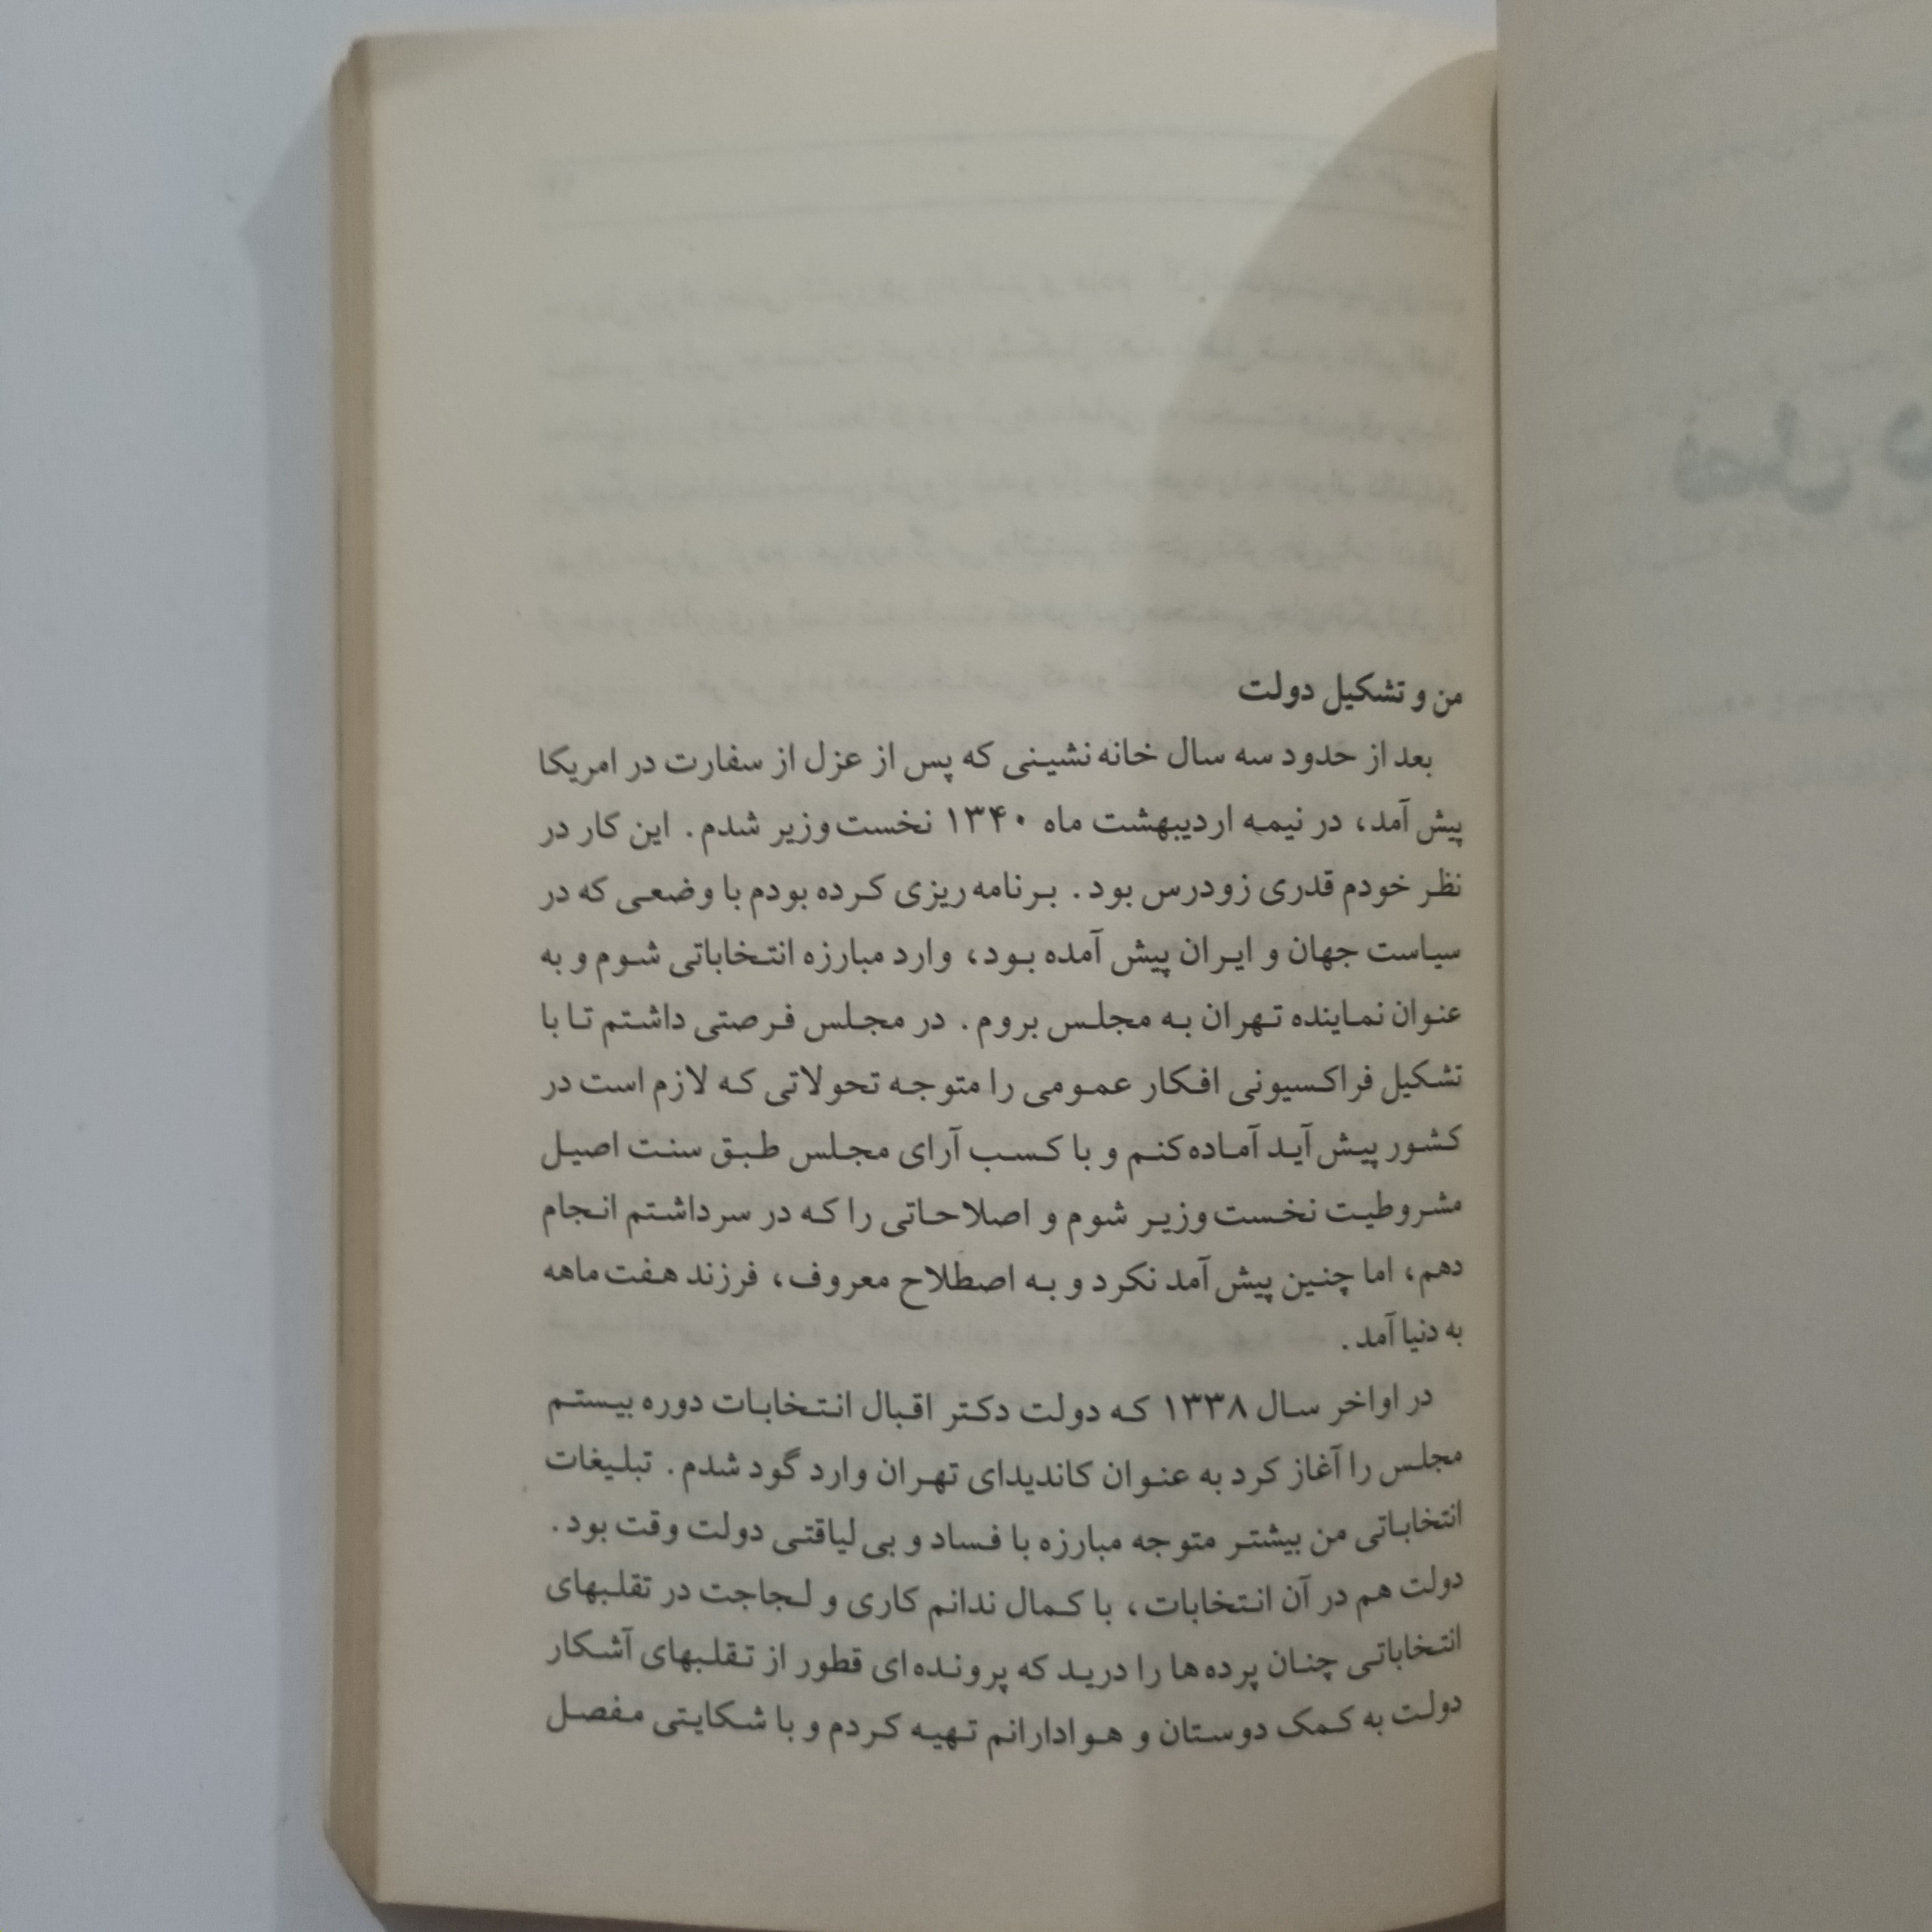 من و تشکیل دولت
بعد از حدود سه سال خانه‌نشینی که پس از عزل از سفارت در امریکا
پیش آمد، در نیمه اردیبهشت ماه ۱۳۴۰ نخست‌وزیر شدم. این کار در
نظر خودم قدری زودرس بود. برنامه‌ریزی کرده بودم با وضعی که در
سیاست جهان و ایران پیش آمده بود، وارد مبارزه انتخاباتی شوم و به
عنوان نماینده تهران به مجلس بروم. در مجلس فرصتی داشتم تا با
تشکیل فراکسیونی افکار عمومی را متوجه تحولاتی که لازم است در
کشور پیش آید آماده کنم و با کسب آرای مجلس طبق سنت اصیل
مشروطیت نخست‌وزیر شوم و اصلاحاتی را که در سر داشتم انجام
دهم، اما چنین پیش آمد نکرد و به اصطلاح معروف، فرزند هفت ماهه
به دنیا آمد.
در اواخر سال ۱۳۳۸ که دولت دکتر اقبال انتخابات دوره بیستم
مجلس را آغاز کرد به عنوان کاندیدای تهران وارد گود شدم. تبلیغات
انتخاباتی من بیشتر متوجه مبارزه با فساد و بی‌لیاقتی دولت وقت بود.
دولت هم در آن انتخابات، با کمال ندانم کاری و لجاجت در تقلبهای
انتخاباتی چنان پرده‌ها را درید که پرونده‌ای قطور از تقلبهای آشکار
دولت به کمک دوستان و هوادارانم تهیه کردم و با شکایتی مفصل
فصل